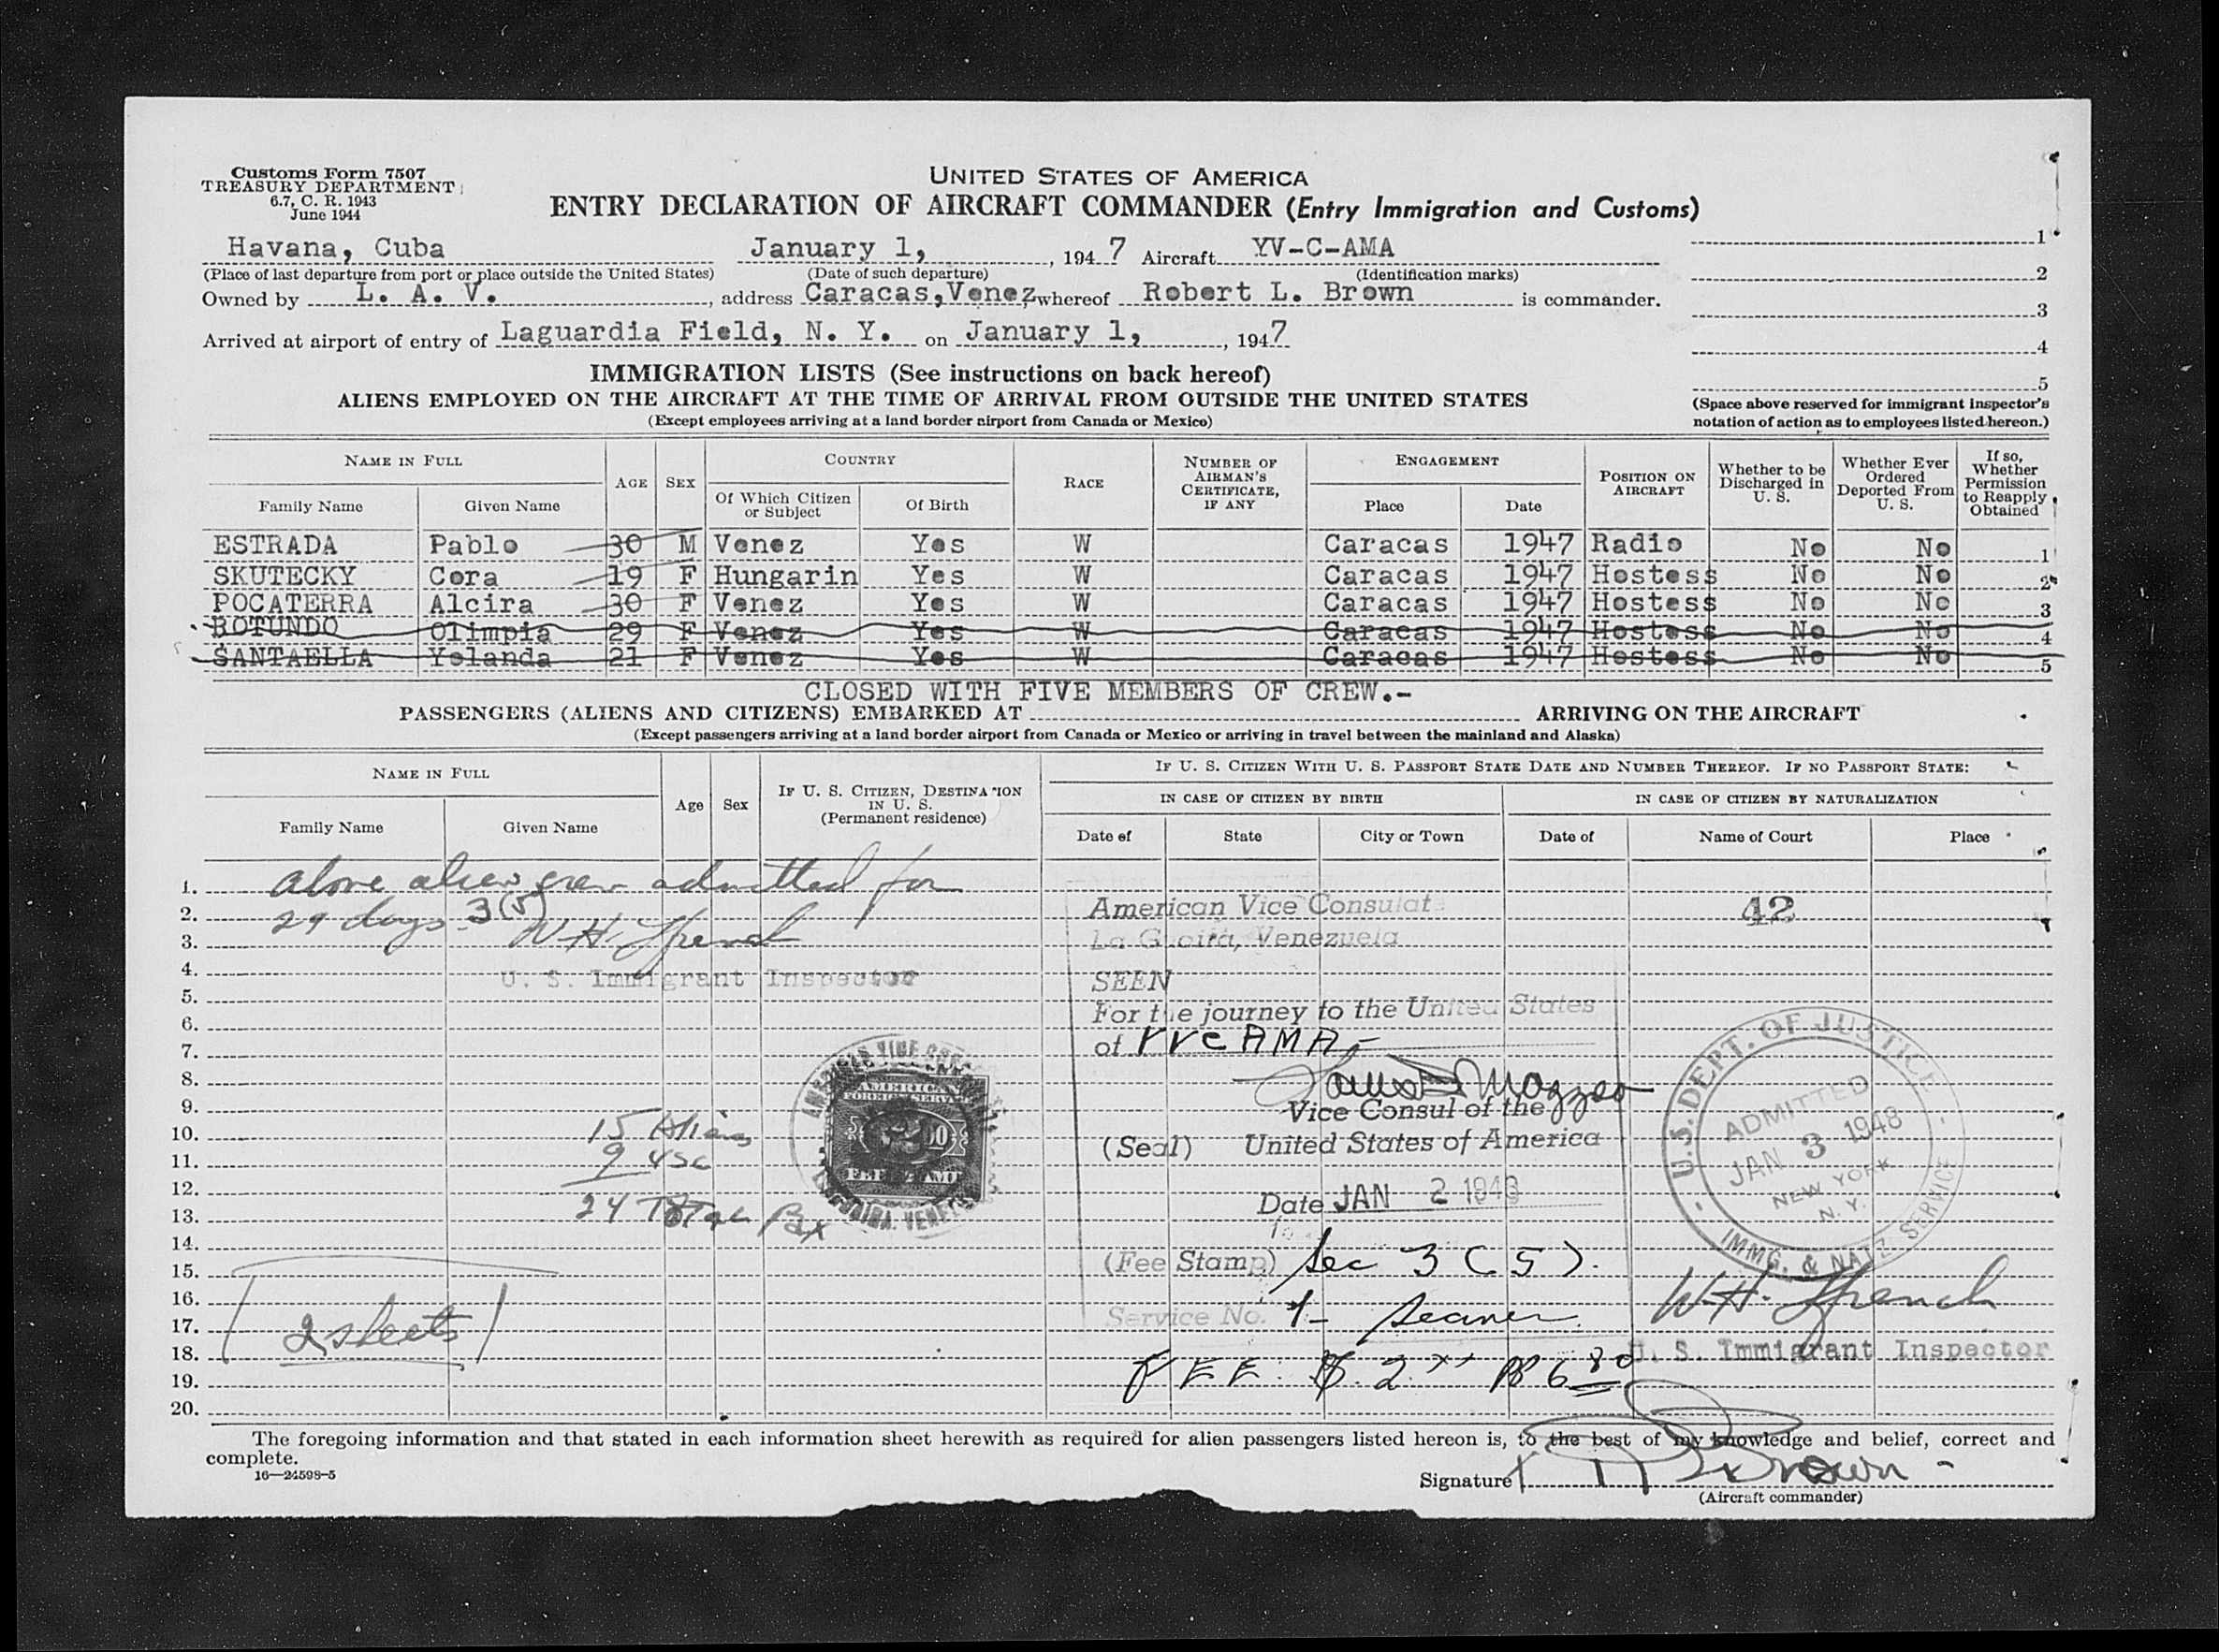 Customs Form 7507
TREASURY DEPARTMENT
6.7, C. R. 1943
June 1944
UNITED STATES OF AMERICA
ENTRY DECLARATION OF AIRCRAFT COMMANDER (Entry Immigration and Customs)
Havana, Cuba January 1, , 1947 Aircraft YV-C-AMA
(Place of last departure from port or place outside the United States) (Date of such departure) (Identification marks)
Owned by L. A. V. , address Caracas,Venez whereof Robert L. Brown is commander.
Arrived at airport of entry of Laguardia Field, N. Y. on January 1, , 1947
1
2
3
4
5
(Space above reserved for immigrant inspector's notation of action as to employees listed hereon.)
IMMIGRATION LISTS (See instructions on back hereof)
ALIENS EMPLOYED ON THE AIRCRAFT AT THE TIME OF ARRIVAL FROM OUTSIDE THE UNITED STATES
(Except employees arriving at a land border airport from Canada or Mexico)
NAME IN FULL AGE SEX COUNTRY RACE NUMBER OF AIRMAN'S CERTIFICATE, IF ANY ENGAGEMENT POSITION ON AIRCRAFT Whether to be Discharged in U. S. Whether Ever Ordered Deported From U. S. If so, Whether Permission to Reapply Obtained
Family Name Given Name Of Which Citizen or Subject Of Birth Place Date
ESTRADA Pablo 30 M Venez Yes W Caracas 1947 Radio No No 1
SKUTECKY Cora 19 F Hungarin Yes W Caracas 1947 Hostess No No 2
POCATERRA Alcira 30 F Venez Yes W Caracas 1947 Hostess No No 3
ROTUNDO Olimpia 29 F Venez Yes W Caracas 1947 Hostess No No 4
SANTAELLA Yolanda 21 F Venez Yes W Caracas 1947 Hostess No No 5
CLOSED WITH FIVE MEMBERS OF CREW.-
PASSENGERS (ALIENS AND CITIZENS) EMBARKED AT ARRIVING ON THE AIRCRAFT
(Except passengers arriving at a land border airport from Canada or Mexico or arriving in travel between the mainland and Alaska)
NAME IN FULL Age Sex IF U. S. CITIZEN, DESTINATION IN U. S. (Permanent residence) IF U. S. CITIZEN WITH U. S. PASSPORT STATE DATE AND NUMBER THEREOF. IF NO PASSPORT STATE:
IN CASE OF CITIZEN BY BIRTH IN CASE OF CITIZEN BY NATURALIZATION
Family Name Given Name Date of State City or Town Date of Name of Court Place
1. above alien crew admitted for
2. 29 days 3(5) American Vice Consulate 42
3. W.H. French La Guaira, Venezuela
4. U. S. Immigrant Inspector SEEN
5. For the journey to the United States
6.
7. of YVC AMA -
8.
9. Vice Consul of the
10. 15 Aliens (Seal) United States of America
11. 9 USC
12. Date JAN 2 1948
13. 24 Total Pax
14. (Fee Stamp) Sec 3 (5).
15.
16. Service No.
17. 2 sheets
18.
19. FEE: $ 2
20.
AMERICAN VICE CONSULATE
LA GUAIRA, VENEZUELA
AMERICAN
FOREIGN SERVICE
FEE STAMP
U.S. DEPT. OF JUSTICE
ADMITTED
JAN 3 1948
NEW YORK
N. Y.
IMMG. & NATZ. SERVICE
W.H. French
U. S. Immigrant Inspector
The foregoing information and that stated in each information sheet herewith as required for alien passengers listed hereon is, to the best of my knowledge and belief, correct and
complete.
16—24598-5
Signature R L Brown
(Aircraft commander)